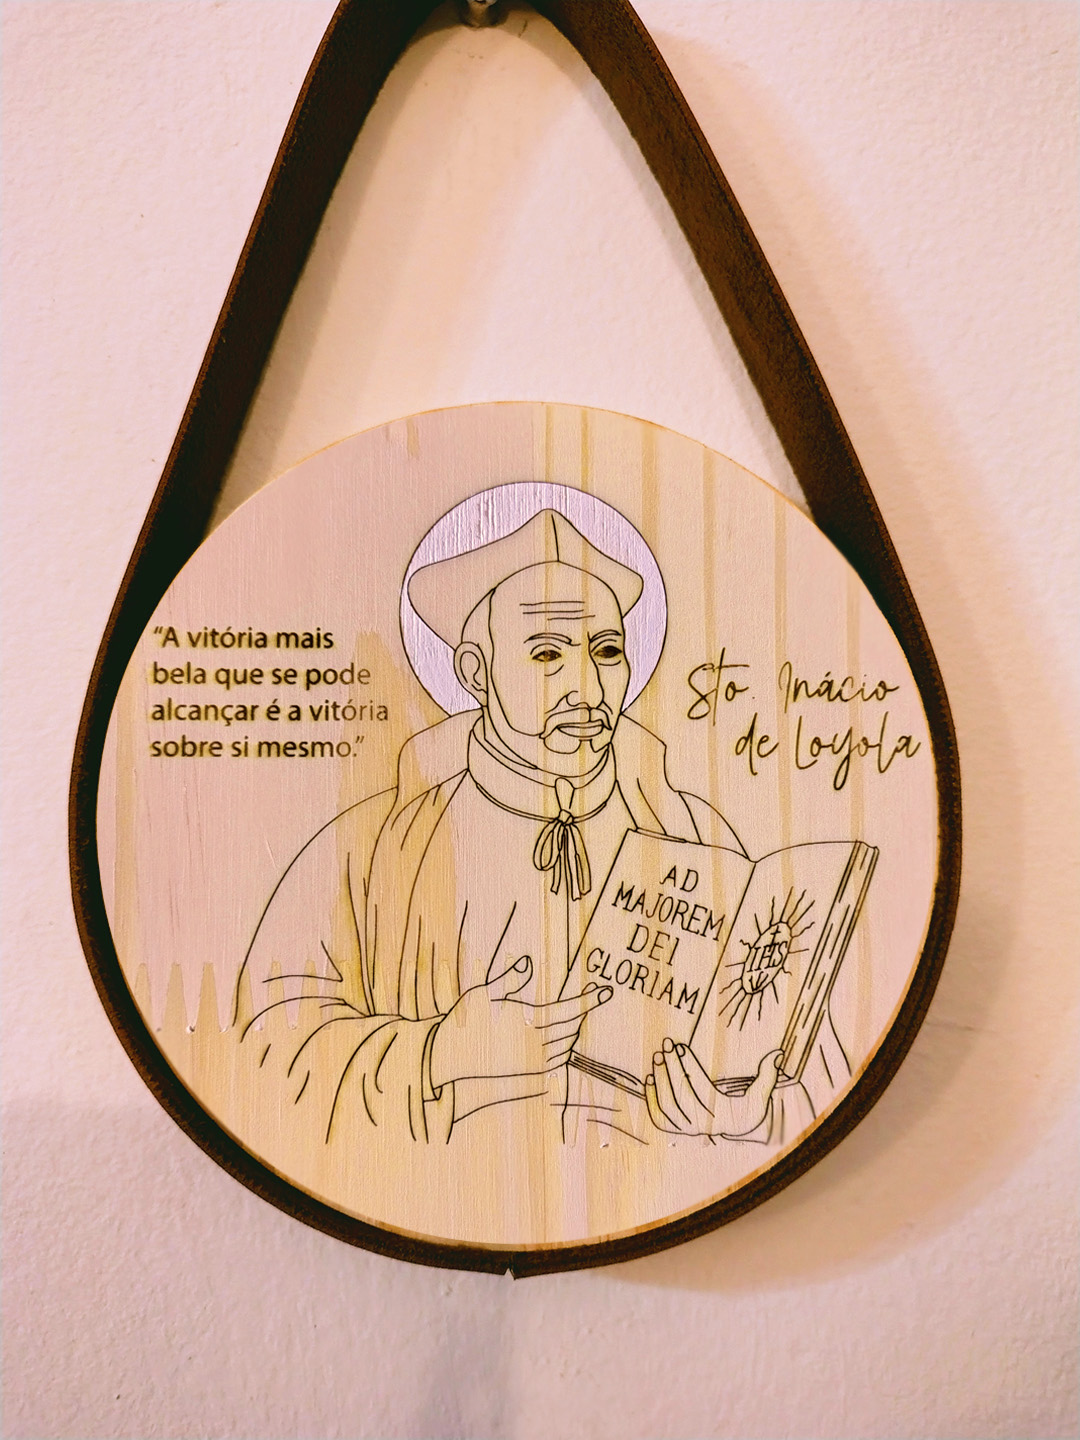 “A vitória mais
bela que se pode
alcançar é a vitória
sobre si mesmo.”
Sto. Inácio
de Loyola
AD
MAJOREM
DEI
GLORIAM
IHS